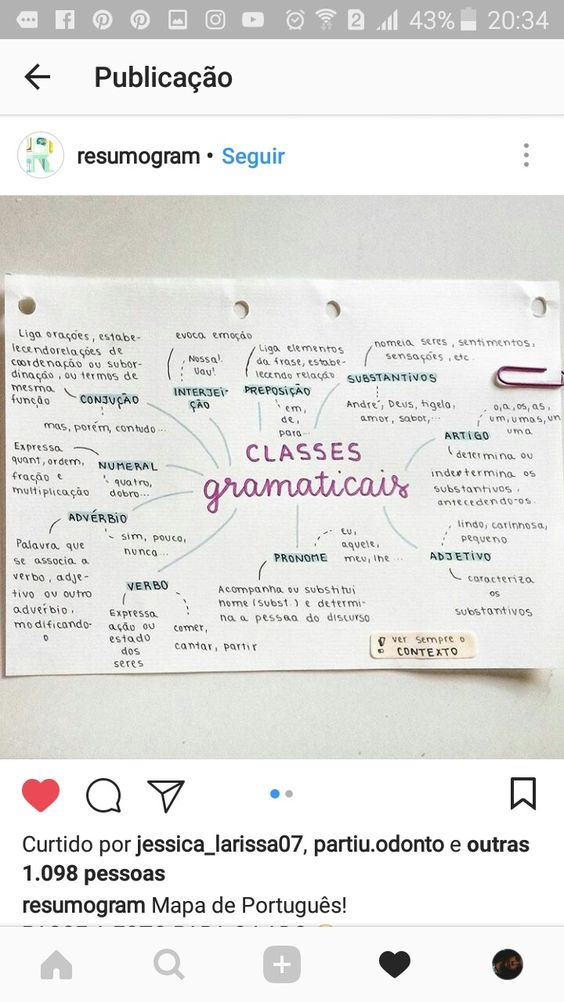 2 43% 20:34
Publicação
resumogram • Seguir
Liga orações, estabe-
lecendo relações de
coordenação ou subor-
dinação, ou termos de
mesma
função
CONJUÇÃO
mas, porém, contudo...
evoca emoção
Nossa!
Uau!
INTERJEI-
ÇÃO
Liga elementos
da frase, estabe-
lecendo relação
PREPOSIÇÃO
em,
de,
para...
nomeia seres, sentimentos,
sensações, etc.
SUBSTANTIVOS
André, Deus, tigela,
amor, sabor,...
o, a, os, as,
um, umas, un
uma
ARTIGO
determina ou
indetermina os
substantivos,
antecedendo-os.
CLASSES
gramaticais
Expressa
quant, ordem,
fração e
multiplicação
NUMERAL
quatro,
dobro...
ADVÉRBIO
sim, pouco,
nunca...
Palavra que
se associa a
verbo, adje-
tivo ou outro
advérbio,
modificando-
o
VERBO
Expressa
ação ou
estado
dos
seres
comer,
cantar, partir
PRONOME
eu,
aquele,
meu, lhe...
Acompanha ou substitui
nome (subst.) e determi-
na a pessoa do discurso
lindo, carinhosa,
pequeno
ADJETIVO
caracteriza
os
substantivos
ver sempre o
CONTEXTO
Curtido por jessica_larissa07, partiu.odonto e outras
1.098 pessoas
resumogram Mapa de Português!